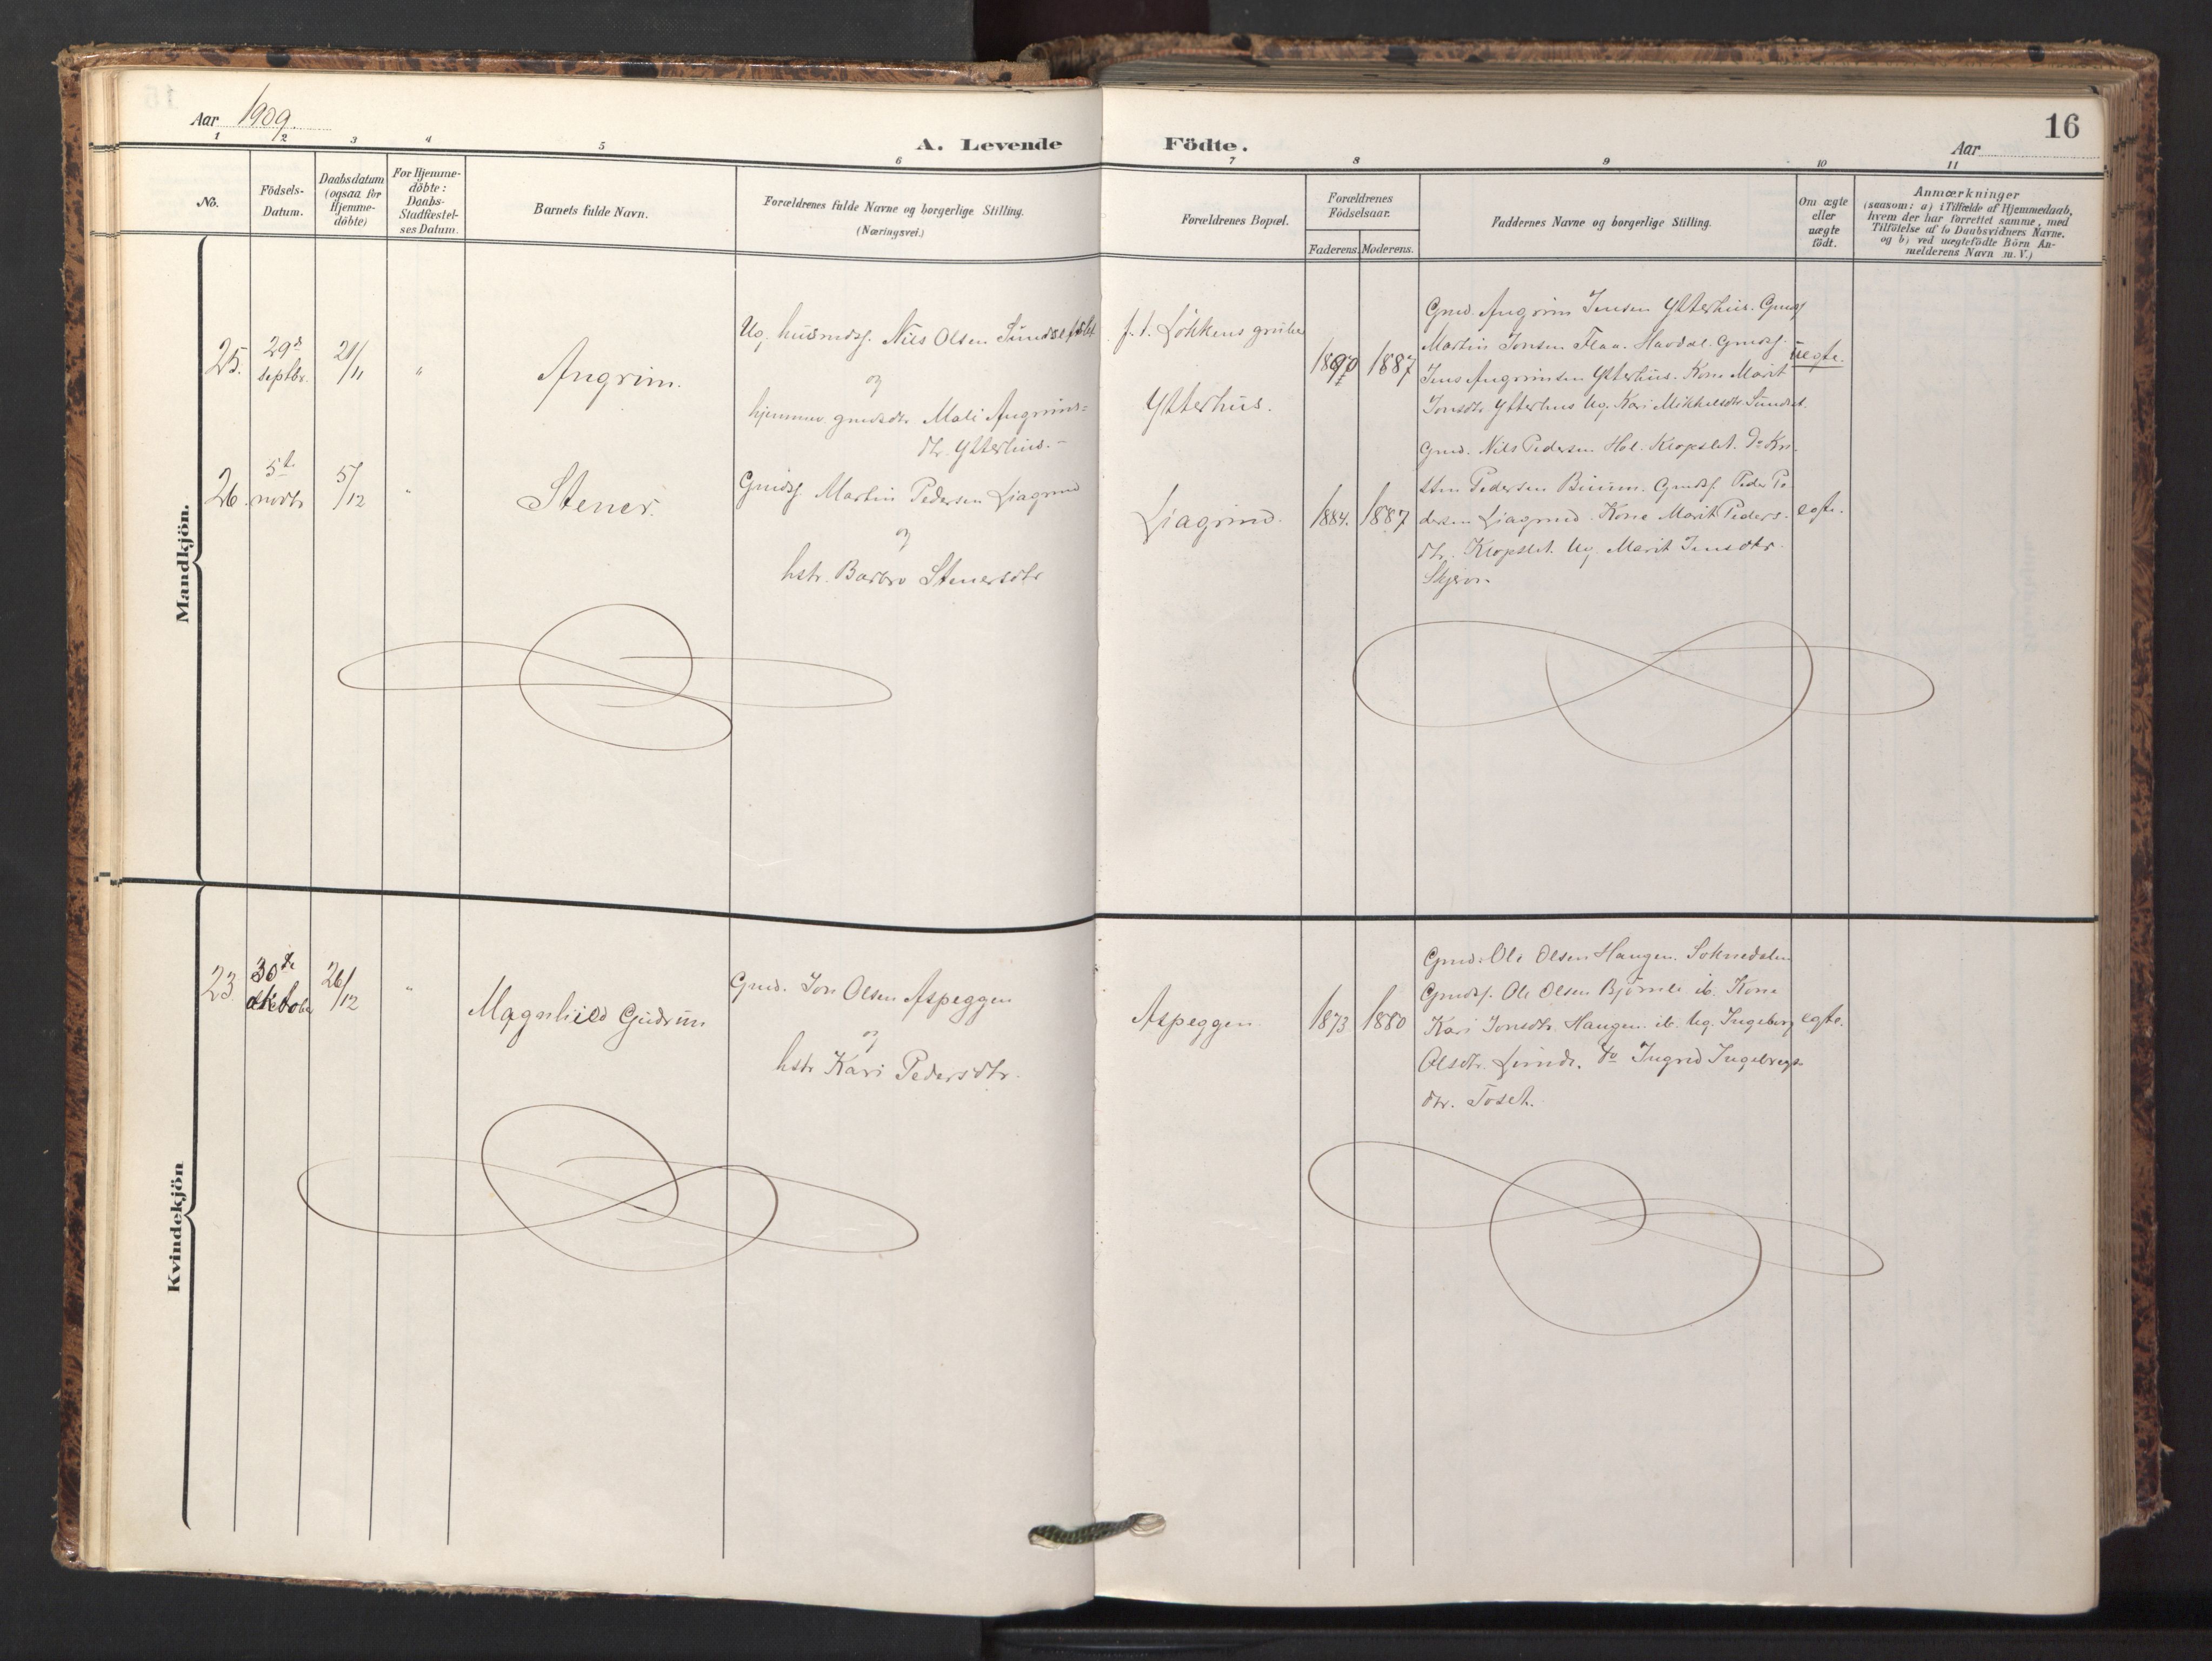 Aar 1909.
A. Levende Födte.
16
Aar
1 2 3 4 5 6 7 8 9 10 11
No.
Födsels-
Datum.
Daabsdatum
(ogsaa for
Hjemme-
döbte)
For Hjemme-
döbte:
Daabs-
Stadfæstel-
ses Datum.
Barnets fulde Navn.
Forældrenes fulde Navne og borgerlige Stilling.
(Næringsvei.)
Forældrenes Bopæl.
Forældrenes
Födselsaar.
Faderens. Moderens.
Faddernes Navne og borgerlige Stilling.
Om ægte
eller
uægte
födt.
Anmærkninger
(saasom: a) i Tilfælde af Hjemmedaab,
hvem der har forrettet samme, med
Tilföielse af to Daabsvidners Navne.
og b) ved uægtefödte Börn An-
melderens Navn m. V.)
Mandkjön.
25.
29de
septbr.
21/11
"
Angrim.
Ug. husmdss. Nils Olsen
og
hjemmev. gmdsdtr. Mali Angrims-
dtr. Ytterhus.-
f. t. Lökkens grube
Ytterhus.
1890
1887
Gmd. Angrim Jensen Ytterhus. Gmdss
Martin Jonsen Flaa. Havdal. Gmdss.
Jens Angrimsen Ytterhus. Kone Marit
Jonsdtr. Ytterhus Ug. Kari Mikkelsdtr. Sundset.
uegte.
26.
5te
novbr
5/12
"
Stener.
Gmdss. Martin Pedersen Liagrind
og
hstr. Barbro Stenersdtr
Liagrind.
1884.
1887
Gmd. Nils Pedersen Hol. Klopslet. Do Kri-
sten Pedersen Buum. Gmdss. Peder Pe-
dersen Liagrind. Kone Marit Peders-
dtr. Klopslet. Ug. Marit Jensdtr.
egte.
Kvindekjön
23.
30te
oktober
26/12
"
Magnhild Gudrun
Gmd. Jon Olsen Aspeggen
og
hstr Kari Pedersdtr.
Aspeggen.
1873.
1880
Gmd. Ole Olsen Haugen. Soknedalen
Gmdss. Ole Olsen Björnli ib. Kone
Kari Jonsdtr. Haugen. ib. Ug. Ingeborg
Olsdtr. Lunde. Do Ingrid Ingebregts-
dtr. Toset.
egte.